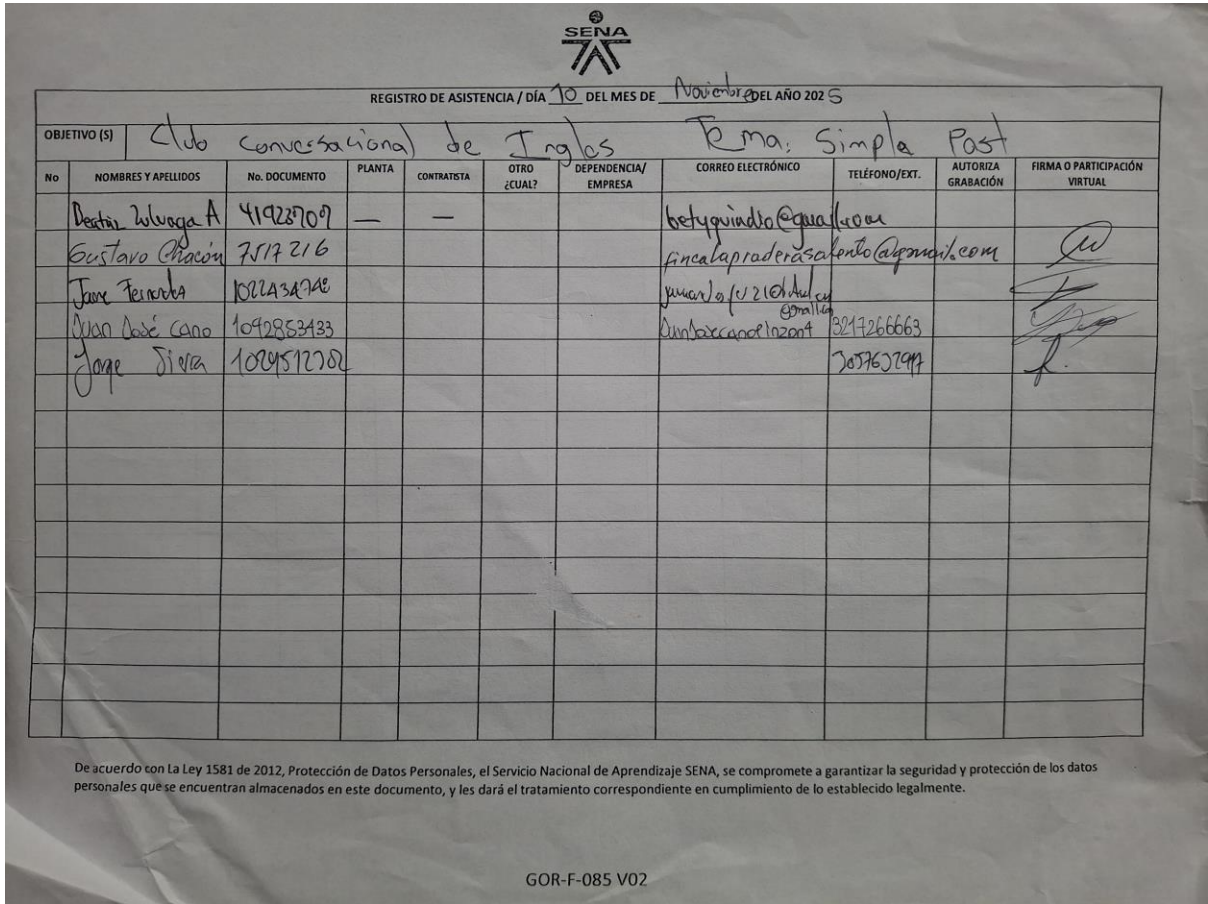 SENA
REGISTRO DE ASISTENCIA / DÍA 10 DEL MES DE Noviembre DEL AÑO 2025
OBJETIVO (S) Club Conversacional de Ingles Tema: Simple Past
No NOMBRES Y APELLIDOS No. DOCUMENTO PLANTA CONTRATISTA OTRO ¿CUAL? DEPENDENCIA/ EMPRESA CORREO ELECTRÓNICO TELÉFONO/EXT. AUTORIZA GRABACIÓN FIRMA O PARTICIPACIÓN VIRTUAL
Beatriz Zuluaga A 41923707 — — betyquindio@gmail.com
Gustavo Chacón 7517216 fincalapraderasalento@gmail.com
Jaime
Juan José Cano 1092853433 3217266663
Jorge
De acuerdo con La Ley 1581 de 2012, Protección de Datos Personales, el Servicio Nacional de Aprendizaje SENA, se compromete a garantizar la seguridad y protección de los datos
personales que se encuentran almacenados en este documento, y les dará el tratamiento correspondiente en cumplimiento de lo establecido legalmente.
GOR-F-085 V02